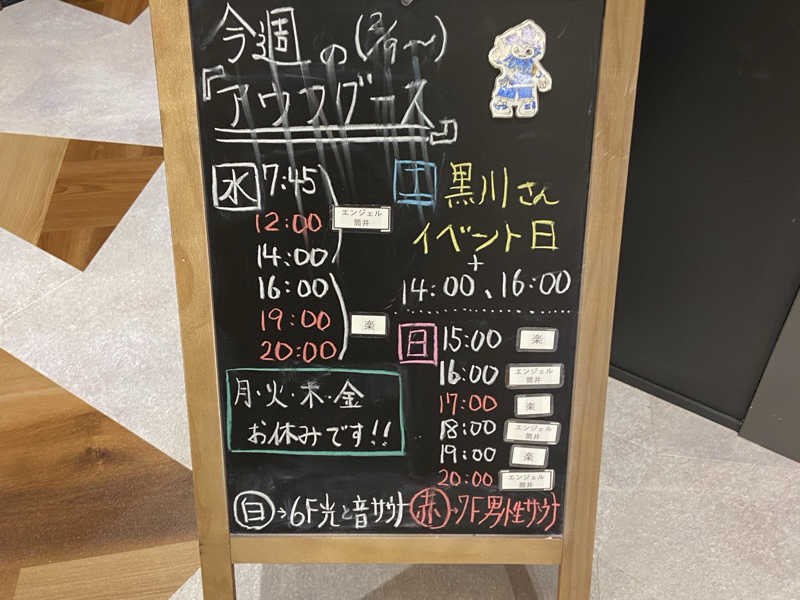 今週の(2/9〜)
『アウフグース』
水 7:45
12:00 エンジェル筒井
14:00
16:00
19:00 楽
20:00
月・火・木・金
お休みです!!
土 黒川さん
イベント日
+
14:00、16:00
日 15:00 楽
16:00 エンジェル筒井
17:00 楽
18:00 エンジェル筒井
19:00 楽
20:00 エンジェル筒井
白→6F光と音サウナ 赤→7F男性サウナ